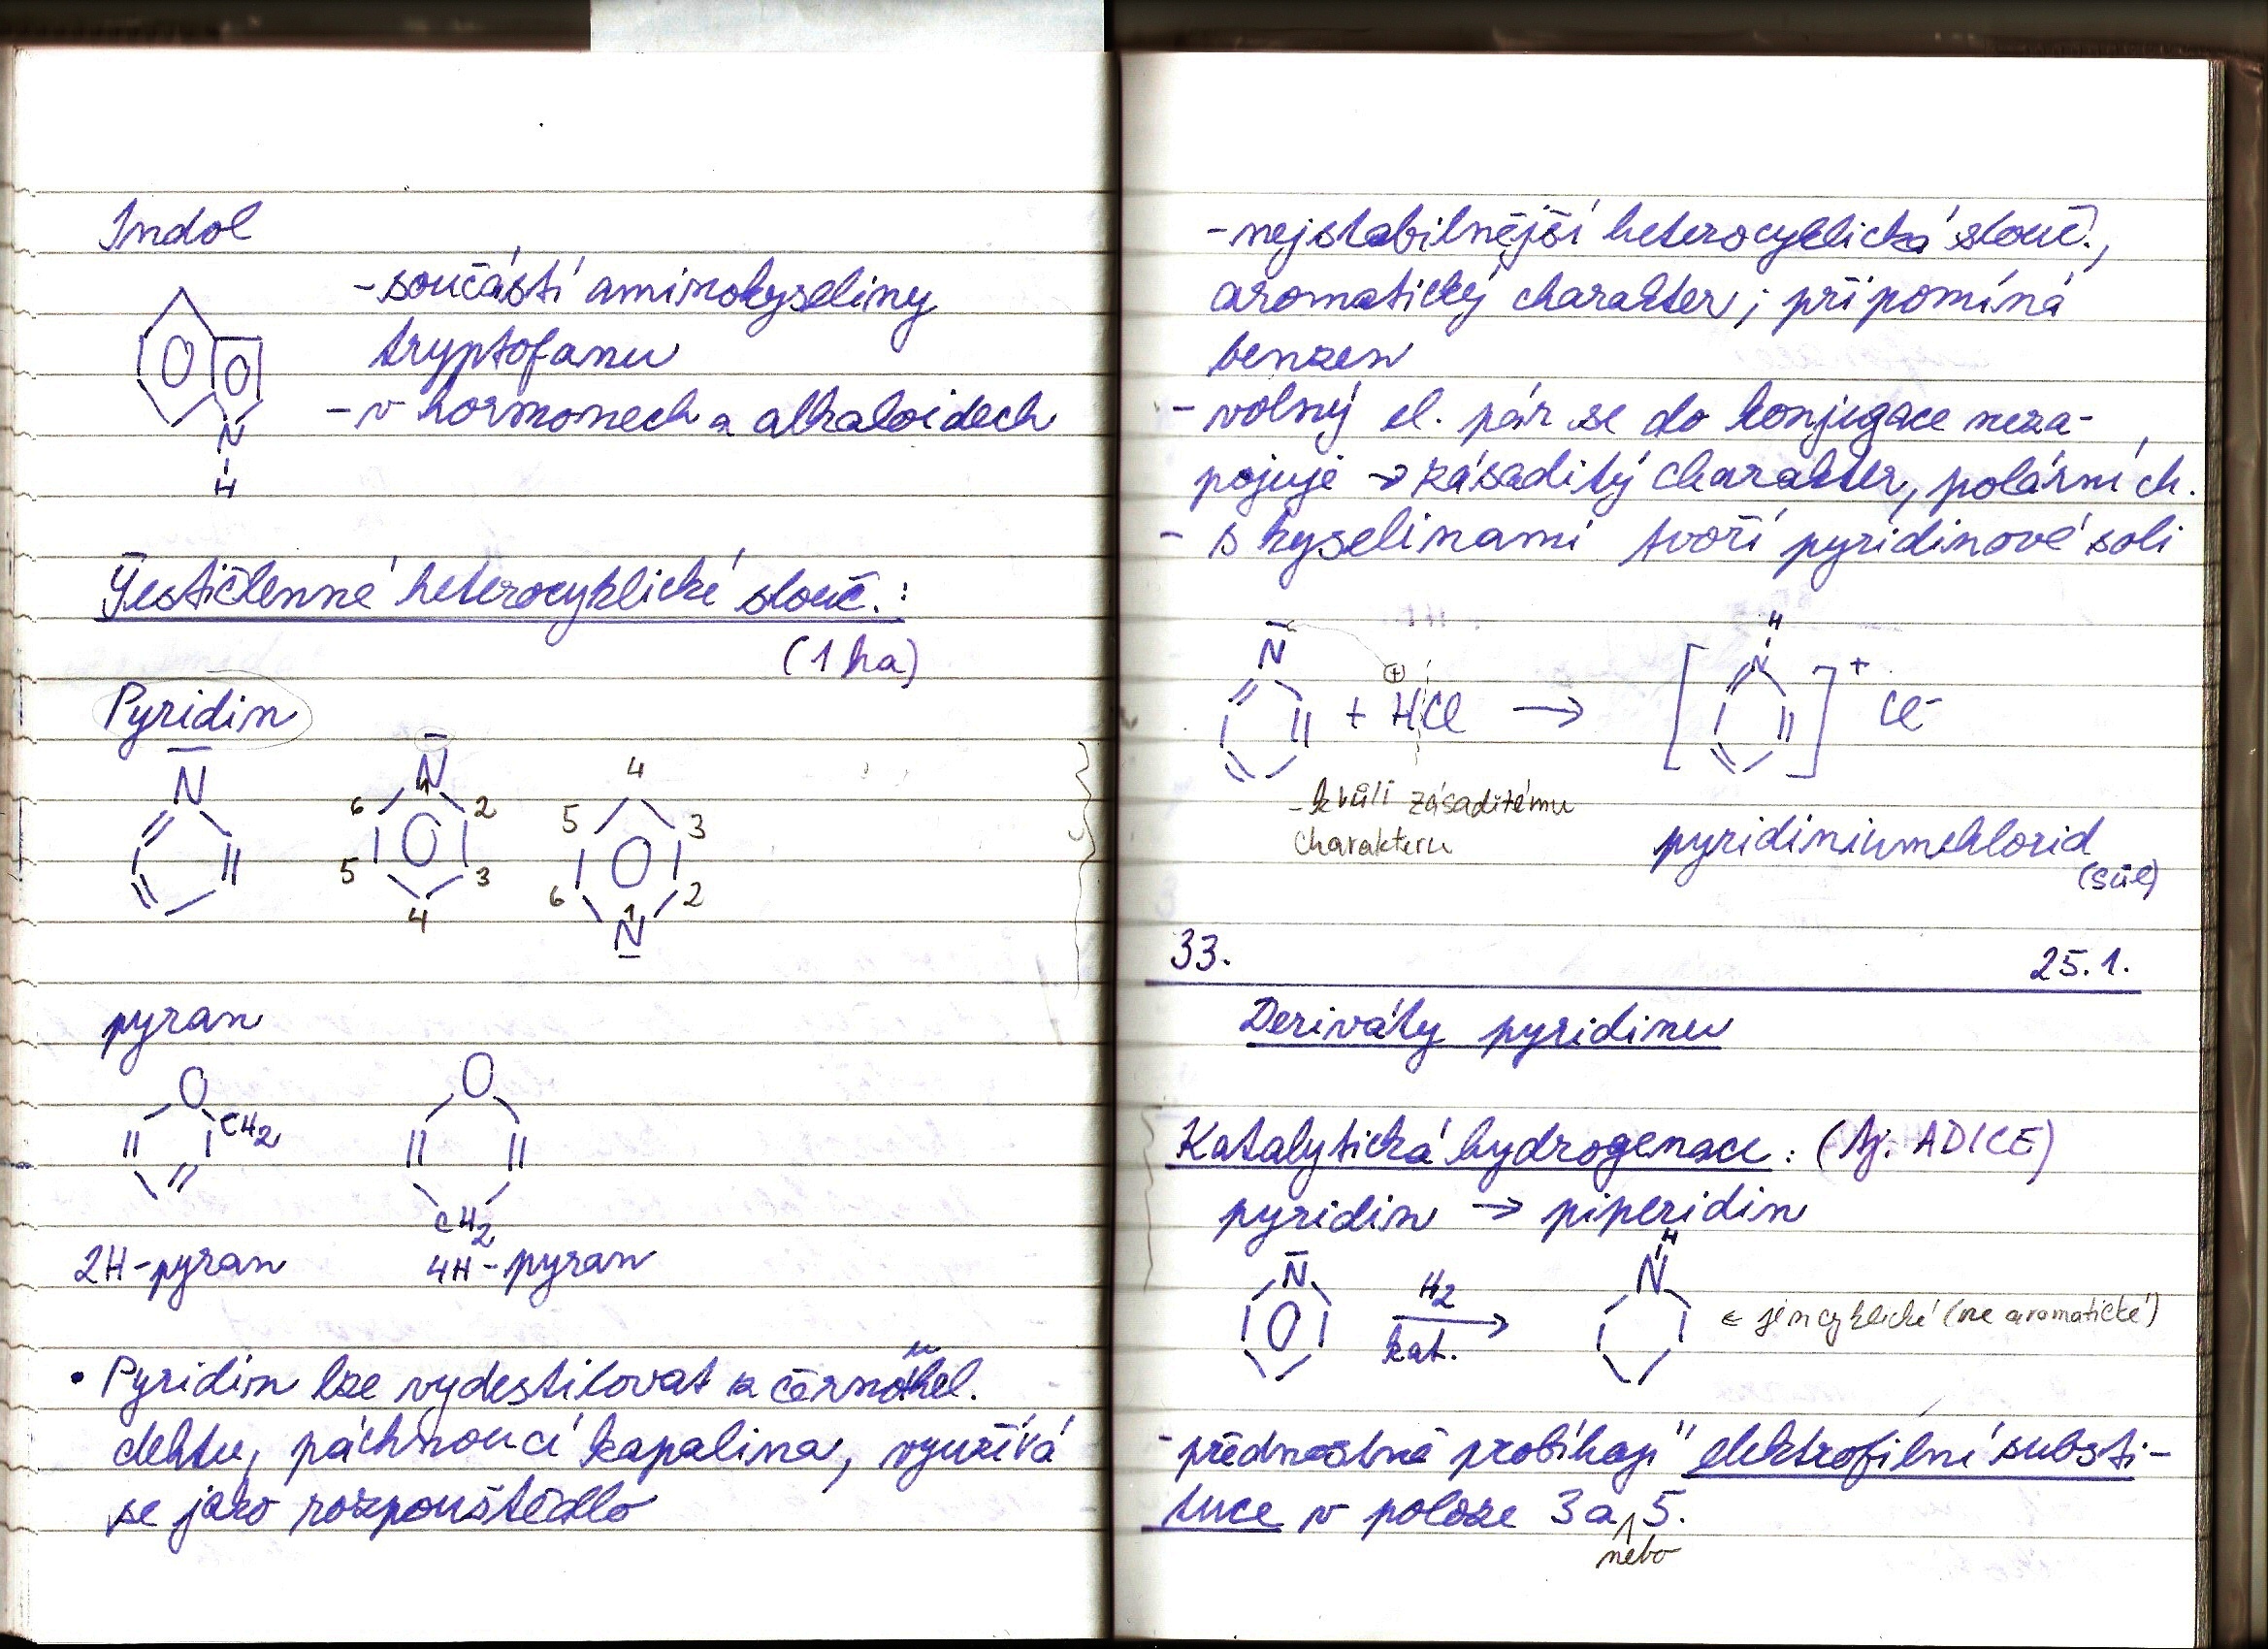 Indol
- součástí aminokyseliny
tryptofanu
- v hormonech a alkaloidech
N
H
Šestičlenné heterocyklické slouč.:
(1 ha)
Pyridin
N
N
1
2
3
4
5
6
4
5
3
6
2
1
N
pyran
O
CH2
O
CH2
2H-pyran
4H-pyran
• Pyridin lze vydestilovat z černouhel.
dehtu, páchnoucí kapalina, využívá
se jako rozpouštědlo
- nejstabilnější heterocyklická slouč.,
aromatický charakter; připomíná
benzen
- volný el. pár se do konjugace neza-
pojuje → zásaditý charakter, polární ch.
- s kyselinami tvoří pyridinové soli
N + HCl → [N H]+ Cl-
- kvůli zásaditému
charakteru
pyridiniumchlorid
(sůl)
33. 25.1.
Deriváty pyridinu
Katalytická hydrogenace: (tj. ADICE)
pyridin → piperidin
N
H2
kat.
N
H
← jen cyklické (ne aromatické)
- přednostně probíhají elektrofilní substi-
tuce v poloze 3 a 5.
nebo